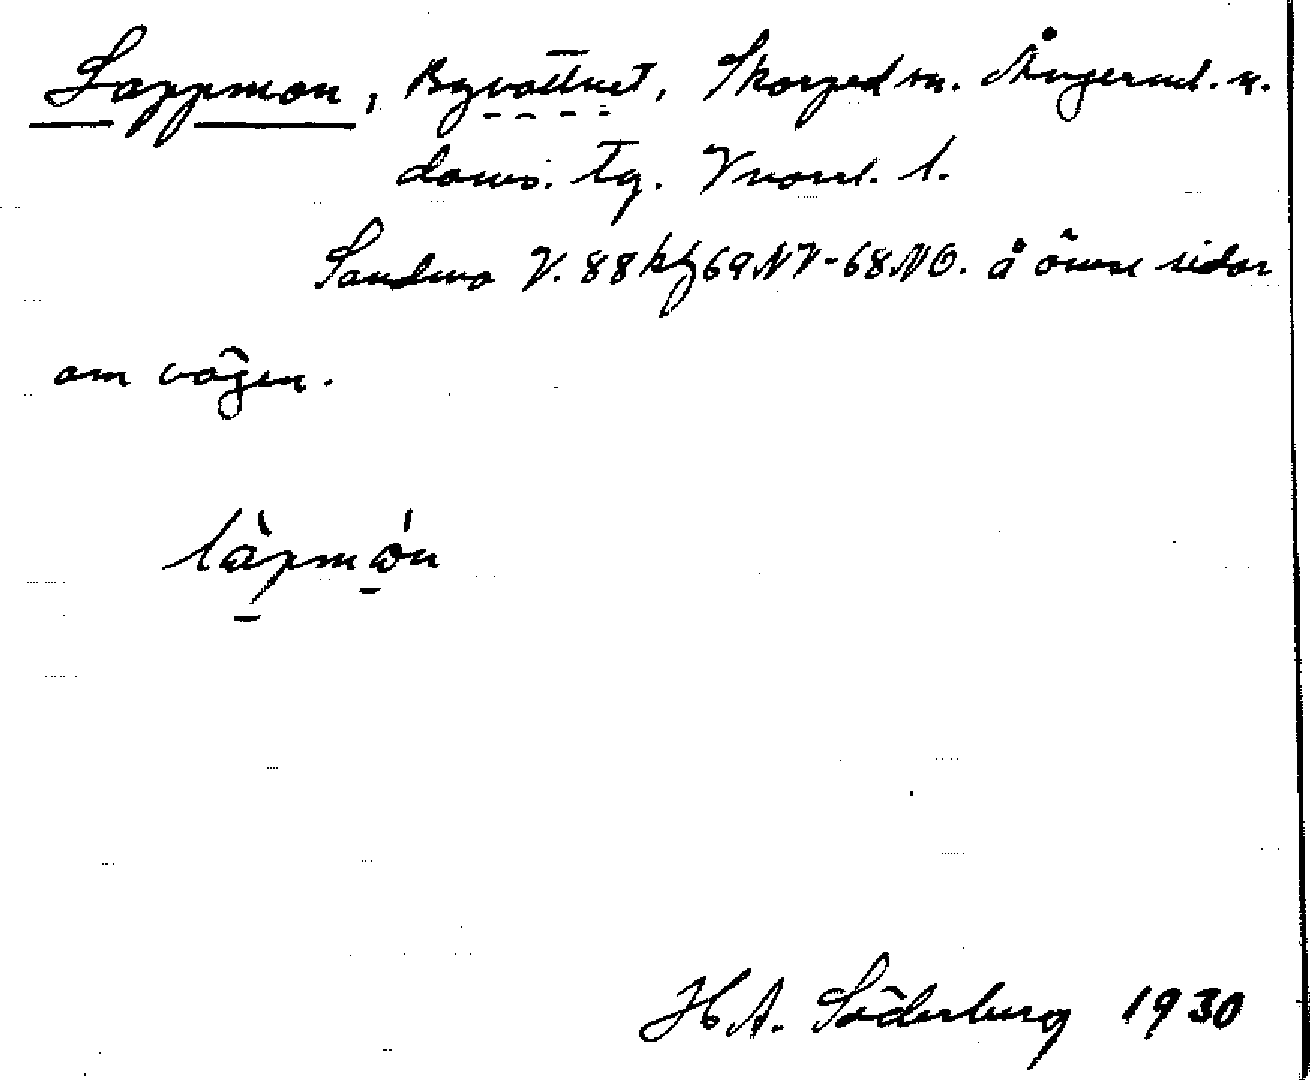 Lappmon, Byvattnet, Skorped sn. Ångerml. n.
doms. tg. Vnorrl. l.
Sandmo V. 88 hf 69NV-68NO. å ömse sidor
om vägen.
làpmón
H A. Söderberg 1930